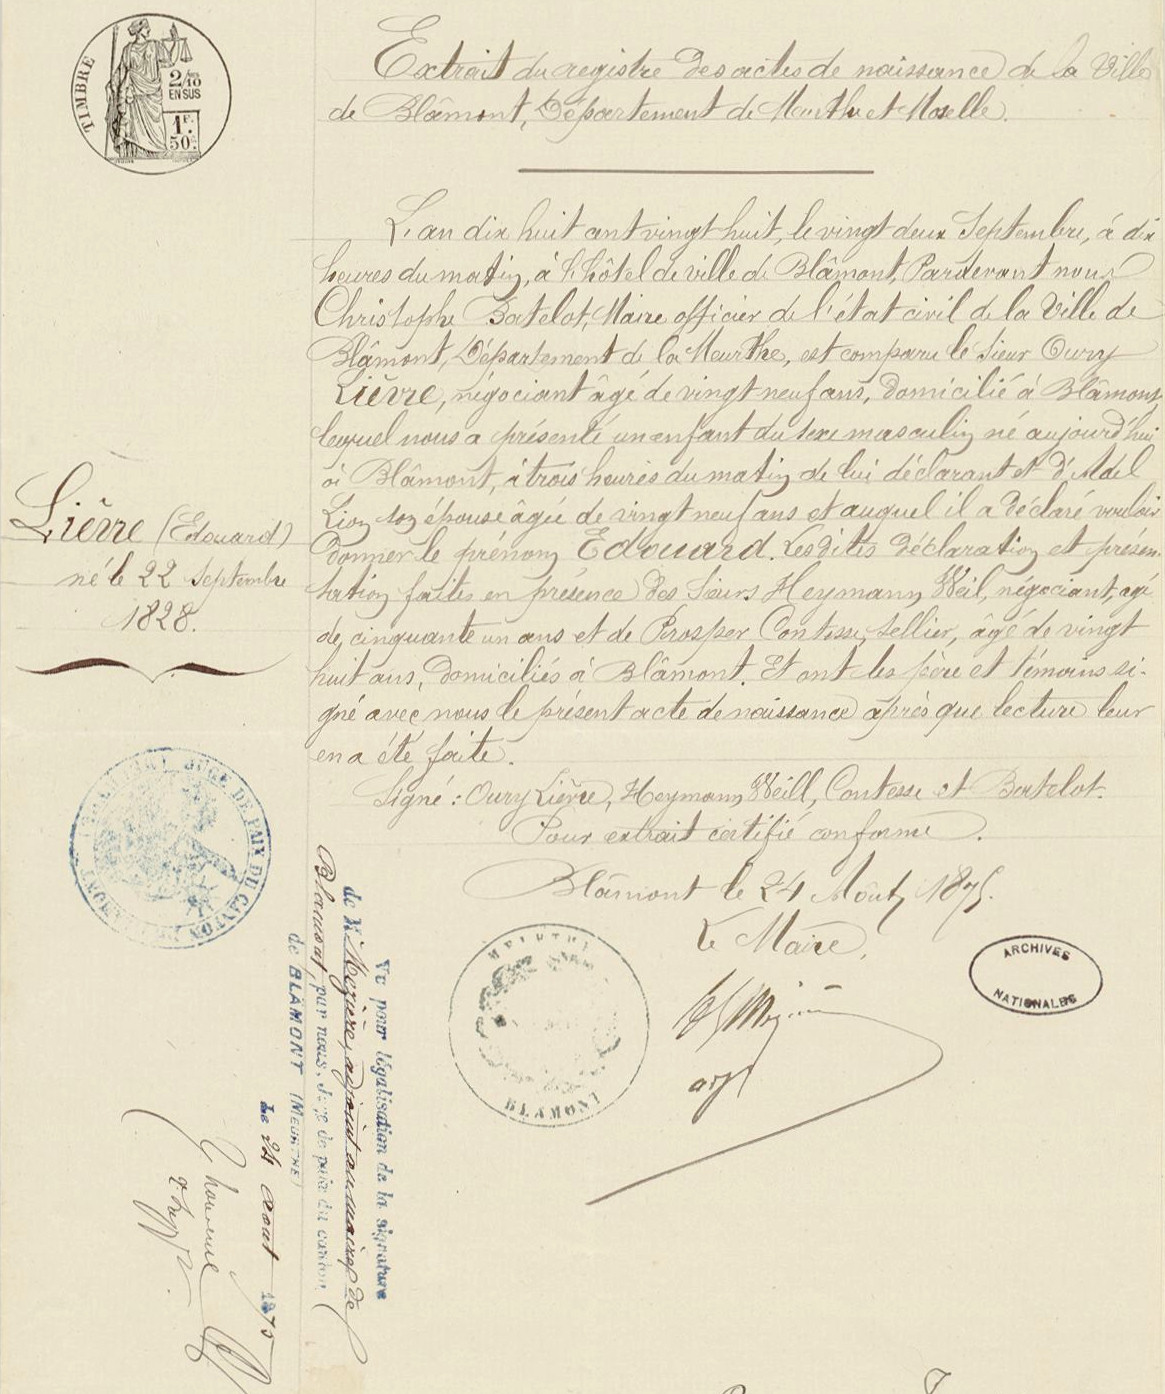 TIMBRE
2/10 EN SUS
1F. 50c.
Extrait du registre des actes de naissance de la Ville
de Blâmont, Département de Meurthe et Moselle.
L'an dix huit cent vingt huit, le vingt deux Septembre, à dix
heures du matin, à l'hôtel de ville de Blâmont, Pardevant nous
Christophe Batelot, Maire officier de l'état civil de la Ville de
Blâmont, Département de la Meurthe, est comparu le Sieur Oury
Lièvre, négociant âgé de vingt neuf ans, domicilié à Blâmont,
lequel nous a présenté un enfant du sexe masculin né aujourd'hui
à Blâmont, à trois heures du matin de lui déclarant et d'Adel
Lion son épouse âgée de vingt neuf ans et auquel il a déclaré vouloir
donner le prénom Edouard. Lesdites déclaration et présen-
tation faites en présence des Sieurs Heymann Weil, négociant, agé
de cinquante un ans et de Prosper Contesse, Sellier, âgé de vingt
huit ans, domiciliés à Blâmont. Et ont les père et témoins si-
gné avec nous le présent acte de naissance après que lecture leur
en a été faite.
Signé : Oury Lièvre, Heymann Weill, Contesse et Batelot.
Pour extrait certifié conforme.
Blâmont le 24 Août 1875.
Le Maire,
adjt
Lièvre (Edouard)
né le 22 Septembre
1828.
JUGE DE PAIX DU CANTON DE BLAMONT
MEURTHE
BLAMONT
ARCHIVES
NATIONALES
Vu pour légalisation de la signature
de M. Mezière, adjoint au maire de
Blamont, par nous, Juge de paix du canton
de BLÂMONT (MEURTHE)
Le 24 aout 1875